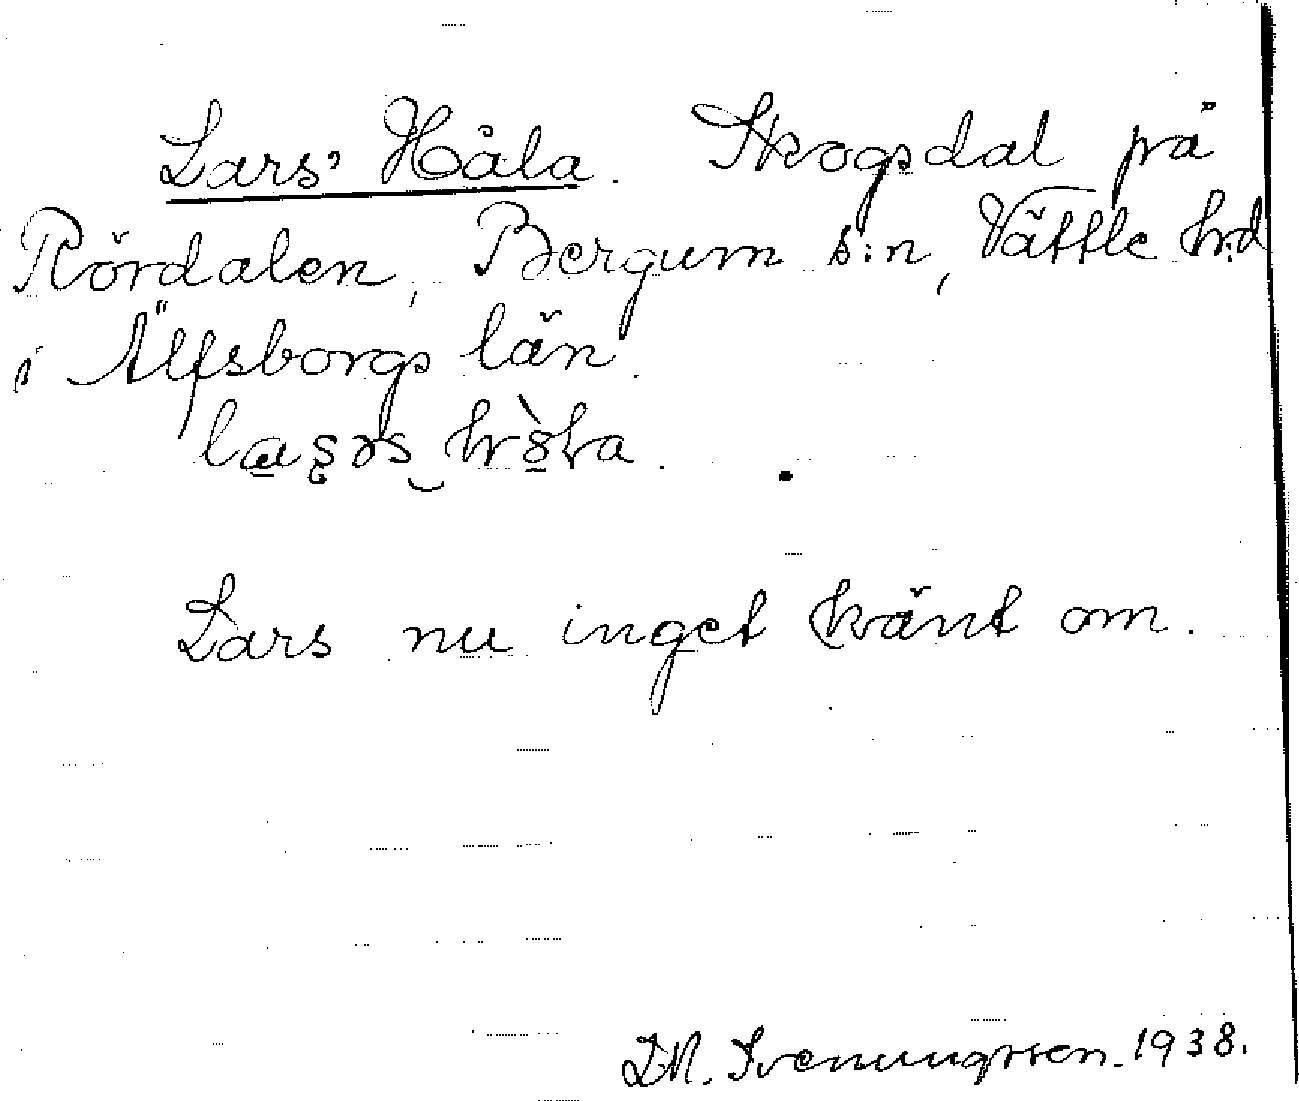 Lars' Håla. Skogsdal på
Rördalen, Bergum s:n, Vättle hd
i Älfsborgs län.
Lars nu inget känt om.
D.N. Svenungsson. 1938.